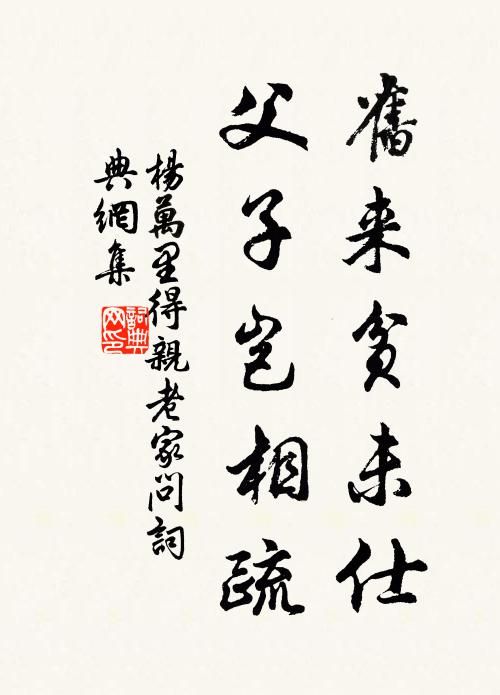 舊来貧未仕
父子豈相疏
楊萬里得親老家問詞
典網集
詞典网印